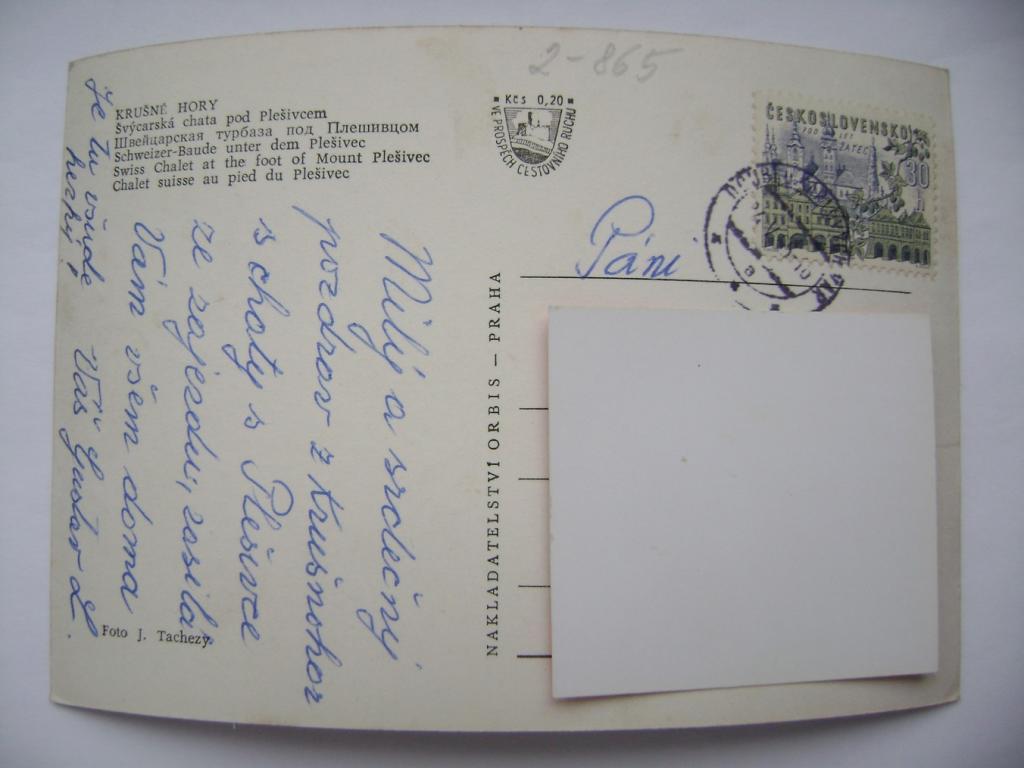 2-865
KRUŠNÉ HORY
Švýcarská chata pod Plešivcem
Швейцарская турбаза под Плешивцом
Schweizer-Baude unter dem Plešivec
Swiss Chalet at the foot of Mount Plešivec
Chalet suisse au pied du Plešivec
Kčs 0,20
VE PROSPĚCH CESTOVNÍHO RUCHU
ČESKOSLOVENSKO
ŽATEC
30
Páni
NAKLADATELSTVÍ ORBIS – PRAHA
Milý a srdečný
pozdrav z Krušnohor
s chaty s Plešivce
ze zájezdu, zasílá
Vám všem doma
Váš Gustav L.
Že tu všude
hezky!
Foto J. Tachezy